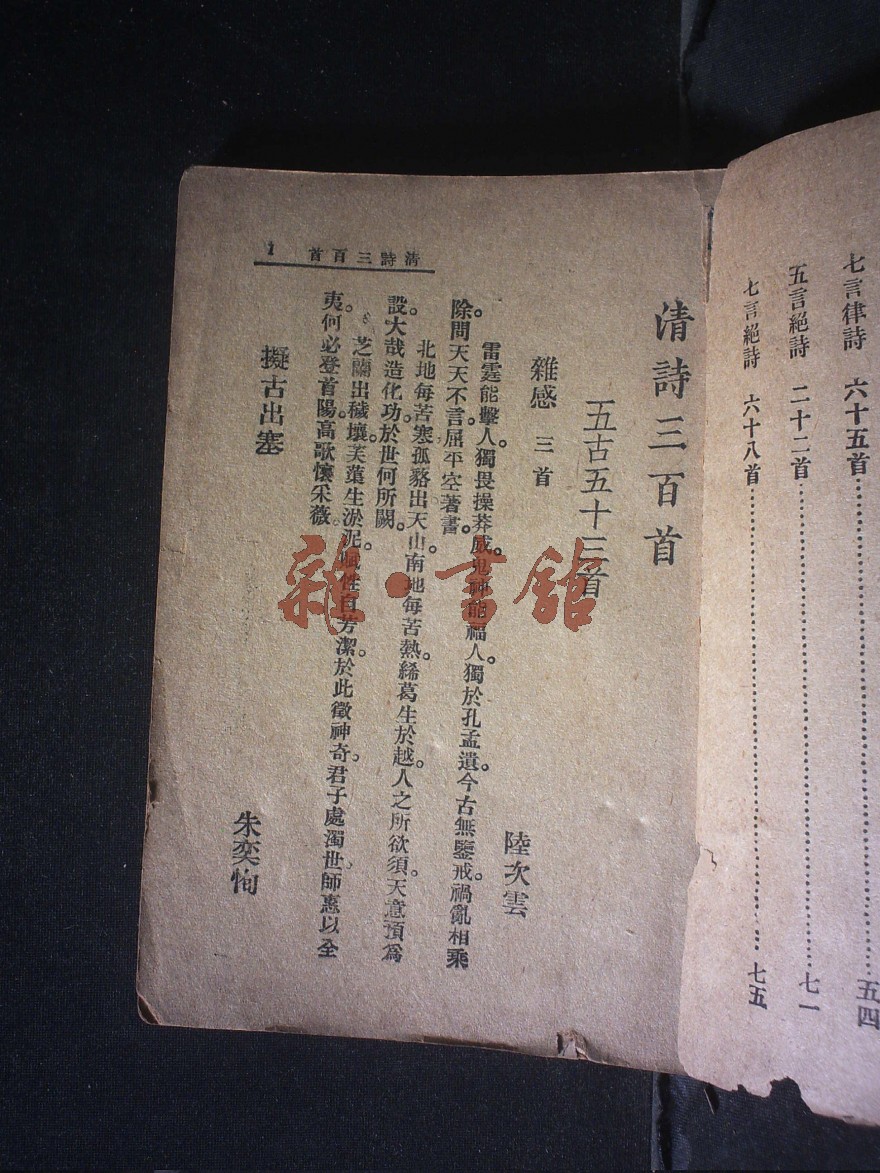 七言律詩 六十五首……五四
五言絕詩 二十二首……七一
七言絕詩 六十八首……七五
清詩三百首 1
清詩三百首
五古五十三首
雜感 三首 陸次雲
雷霆能擊人。獨畏操莽威。鬼神能福人。獨於孔孟遺。今古無鑒戒。禍亂相乘
除。問天天不言。屈平空著書。
北地每苦寒。孤貉出天山。南地每苦熱。絺葛生於越。人之所欲須。天意預爲
設。大哉造化功。於世何所闕。
芝蘭出穢壤。芙蕖生淤泥。賦性自芳潔。於此徵神奇。君子處濁世。師惠以全
夷。何必登首陽。高歌懷采薇。
擬古出塞 朱奕恂
雜·書舘